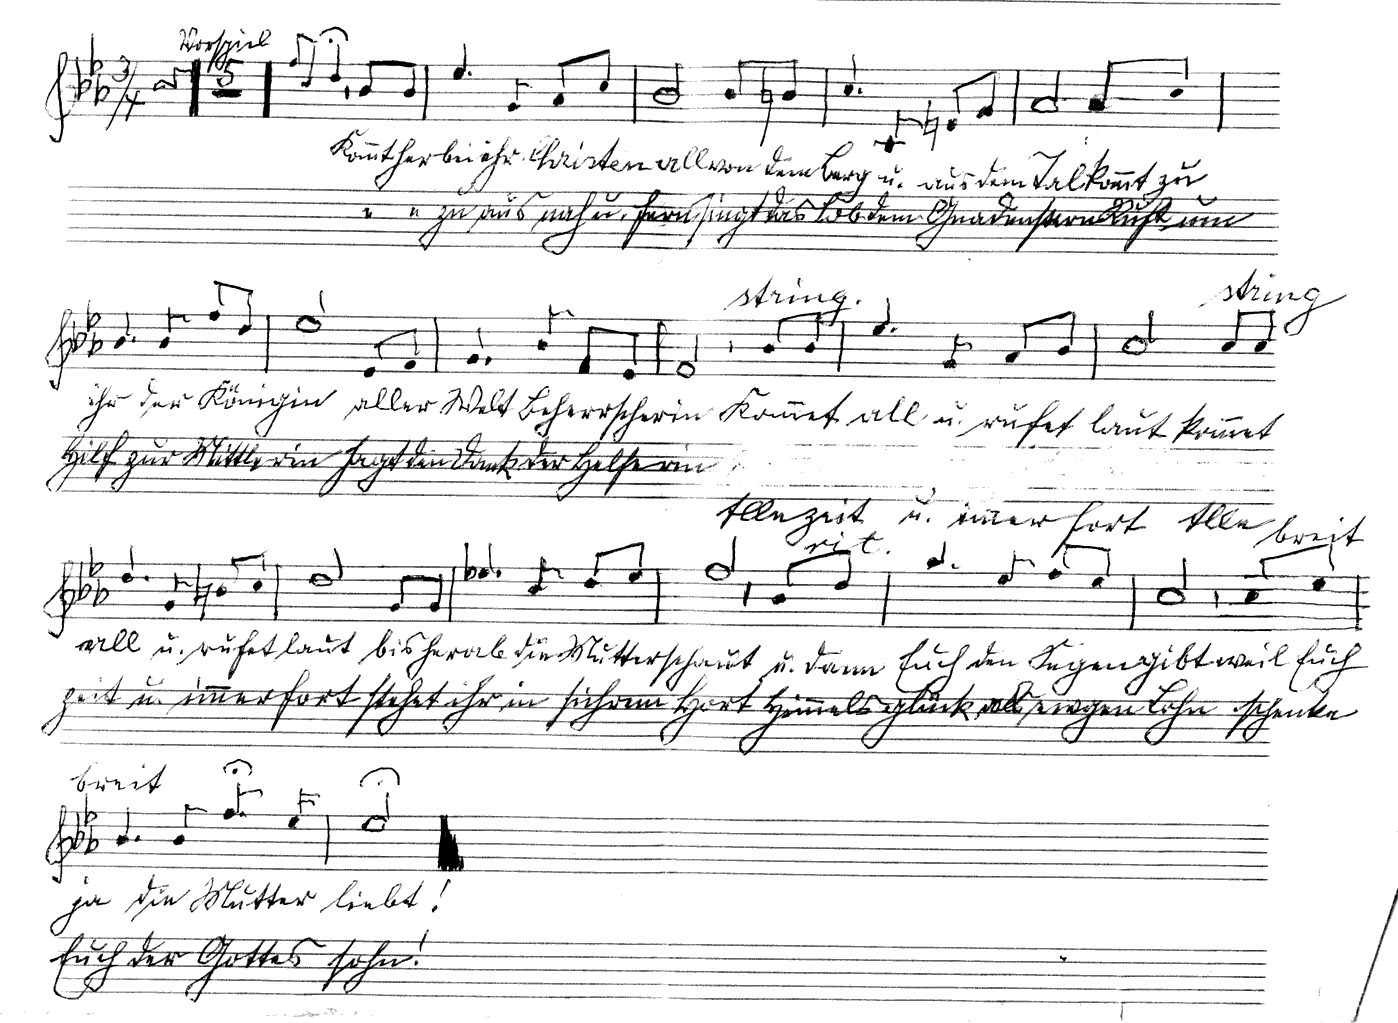 Vorspiel
3/4 5
Kom̅t herbei ihr Christen all von dem Berg u. aus dem Tal kom̅t zu
" " zu aus nah u. fern singt das Lob dem Gnadenstern Ruft um
string. string
ihr der Königin aller Welt Beherrscherin Kom̅et all u. rufet laut kom̅et
Hilf zur Mittlerin sagt den Dank der Helferin
Alle zeit u. im̅er fort Alle
rit. breit
all u. rufet laut bis herab die Mutter schaut u. dann Euch den Segen gibt weil Euch
zeit u. im̅erfort stehet ihr in sichrem Hort Him̅elsglück als ewgen Lohn schenke
breit
ja die Mutter liebt!
Euch der Gottes sohn!